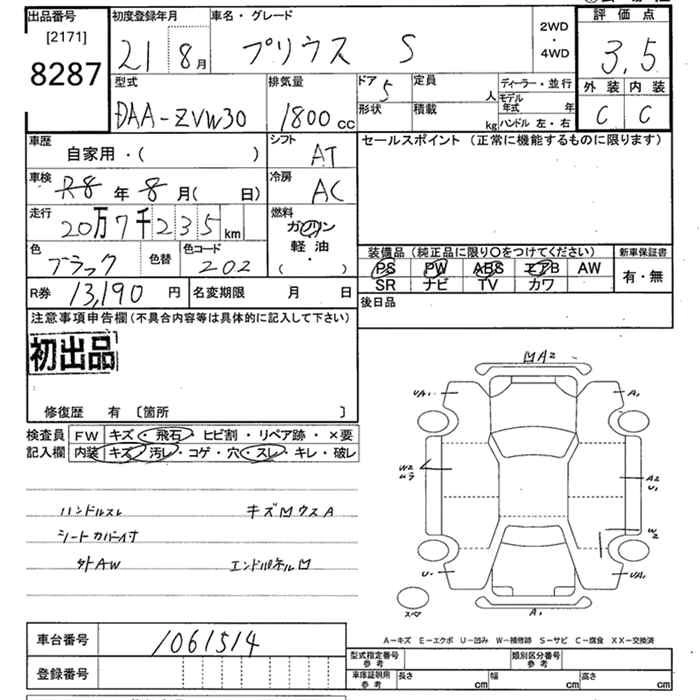 出品番号 [2171] 8287
初度登録年月 21 8月
車名・グレード プリウス S
2WD・4WD
評価点 3.5
外装 C 内装 C
型式 DAA-ZVW30
排気量 1800cc
ドア 5 定員 人
形状 積載 kg
ディーラー・並行
モデル年式 年
ハンドル 左・右
車歴 自家用・( )
シフト AT
セールスポイント (正常に機能するものに限ります)
車検 R8年 8月( 日)
冷房 AC
走行 20万7千235km
燃料 ガソリン 軽油 ・ ( )
色 ブラック 色替 色コード 202
装備品 (純正品に限り○をつけてください) 新車保証書
PS PW ABS エアB AW 有・無
SR ナビ TV カワ
R券 13,190円 名変期限 月 日
後日品
注意事項申告欄 (不具合内容等は具体的に記入して下さい)
初出品
修復歴 有 〔箇所 〕
検査員 FW キズ・飛石・ヒビ割・リペア跡・×要
記入欄 内装 キズ・汚レ・コゲ・穴・スレ・キレ・破レ
ハンドルスレ キズ凹ウスA
シートカバー付
外AW エンドパネル凹
凹A2
UA1 A1
W2 ムラ
A2 U1
W2
U・ UA1
スペア A1
車台番号 1061514
登録番号
A-キズ E-エクボ U-凹み W-補修跡 S-サビ C-腐食 XX-交換済
型式指定番号 参考 類別区分番号 参考
車庫証明用 参考 長さ cm 幅 cm 高さ cm